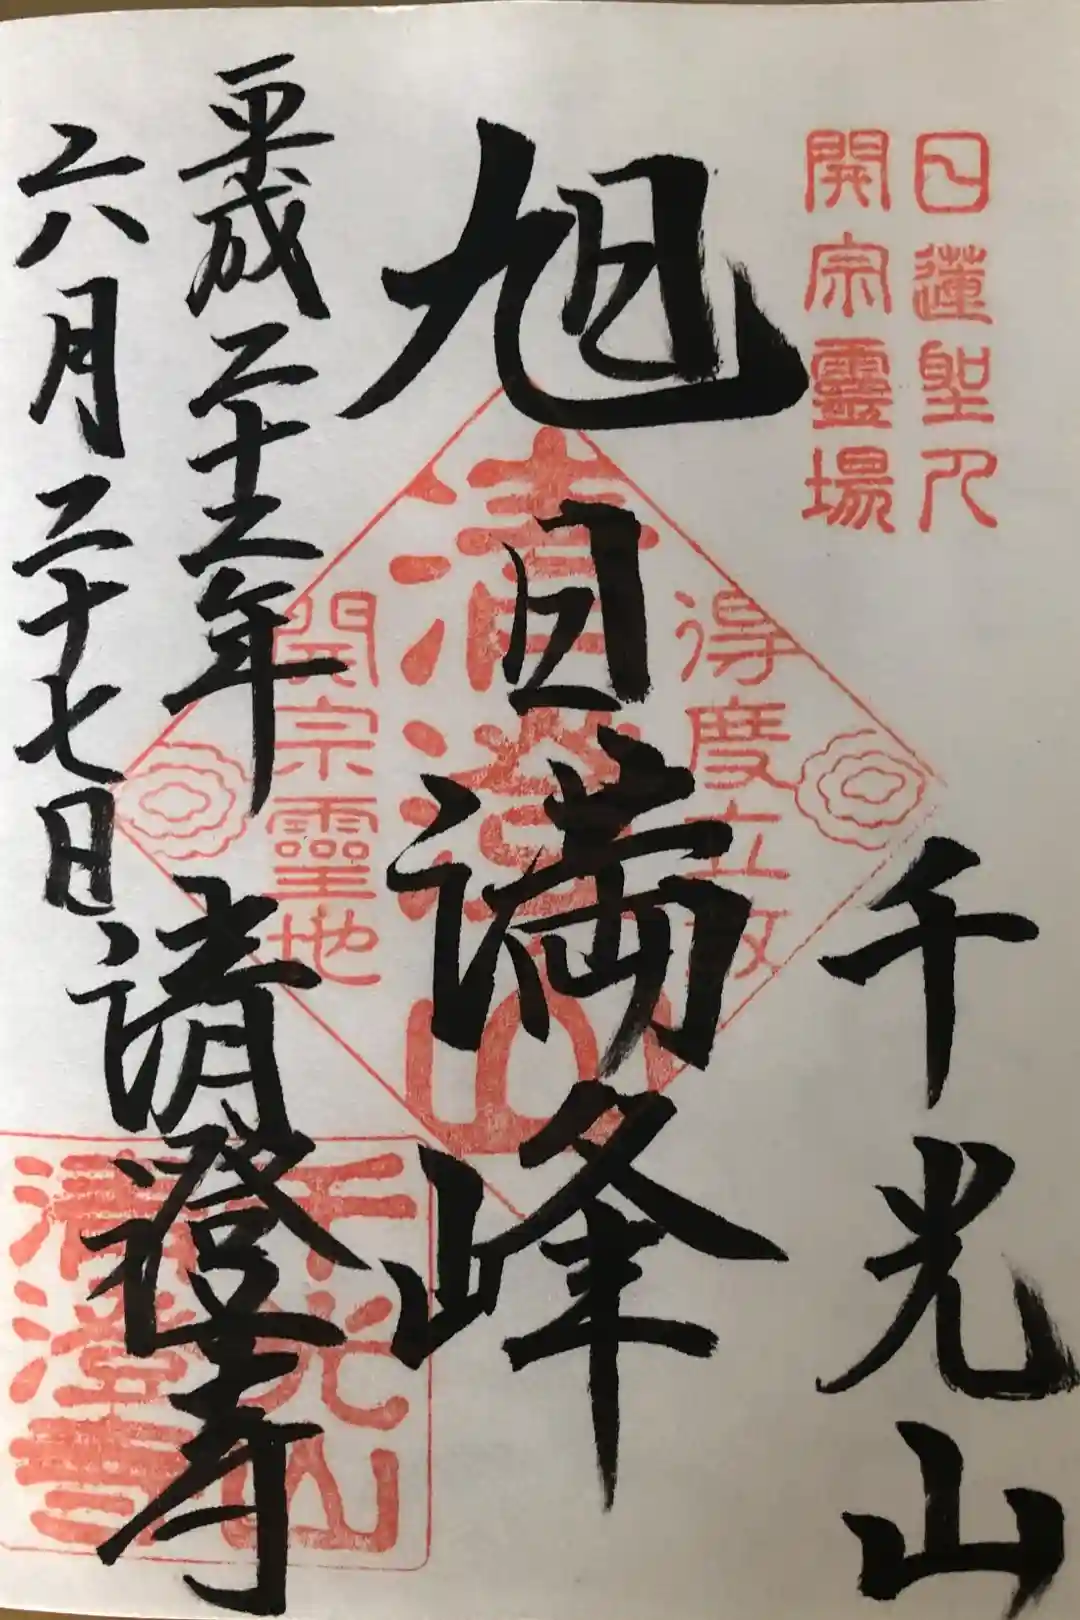 日蓮聖人
開宗靈場
千光山
旭日満峰
得度立教
清澄山
開宗靈地
平成三十年
六月二十七日
清澄寺
千光山
清澄寺